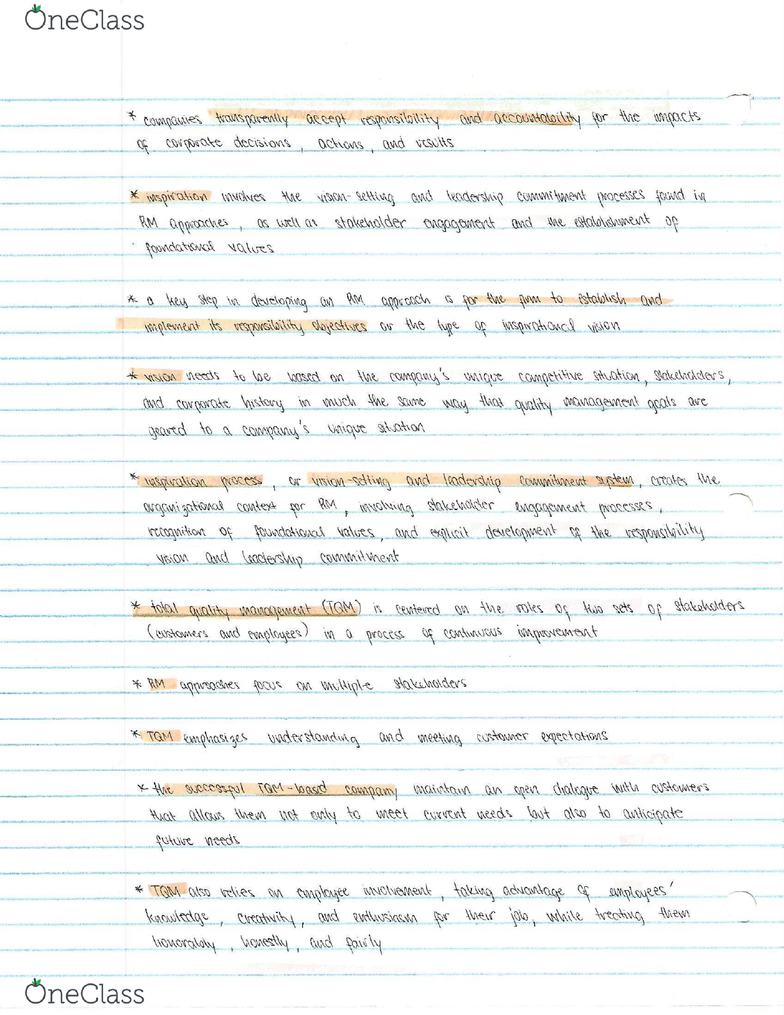 OneClass
* companies transparently accept responsibility and accountability for the impacts
of corporate decisions, actions, and results
* inspiration involves the vision-setting and leadership commitment processes found in
RM approaches, as well as stakeholder engagement and the establishment of
foundational values
* a key step in developing an RM approach is for the firm to establish and
implement its responsibility objectives or the type of inspirational vision
* vision needs to be based on the company's unique competitive situation, stakeholders,
and corporate history in much the same way that quality management goals are
geared to a company's unique situation
* inspiration process, or vision-setting and leadership commitment system, creates the
organizational context for RM, involving stakeholder engagement processes,
recognition of foundational values, and explicit development of the responsibility
vision and leadership commitment
* total quality management (TQM) is centered on the roles of two sets of stakeholders
(customers and employees) in a process of continuous improvement
* RM approaches focus on multiple stakeholders
* TQM emphasizes understanding and meeting customer expectations
* the successful TQM-based company maintain an open dialogue with customers
that allows them not only to meet current needs but also to anticipate
future needs
* TQM also relies on employee involvement, taking advantage of employees'
knowledge, creativity, and enthusiasm for their job, while treating them
honorably, honestly, and fairly
OneClass